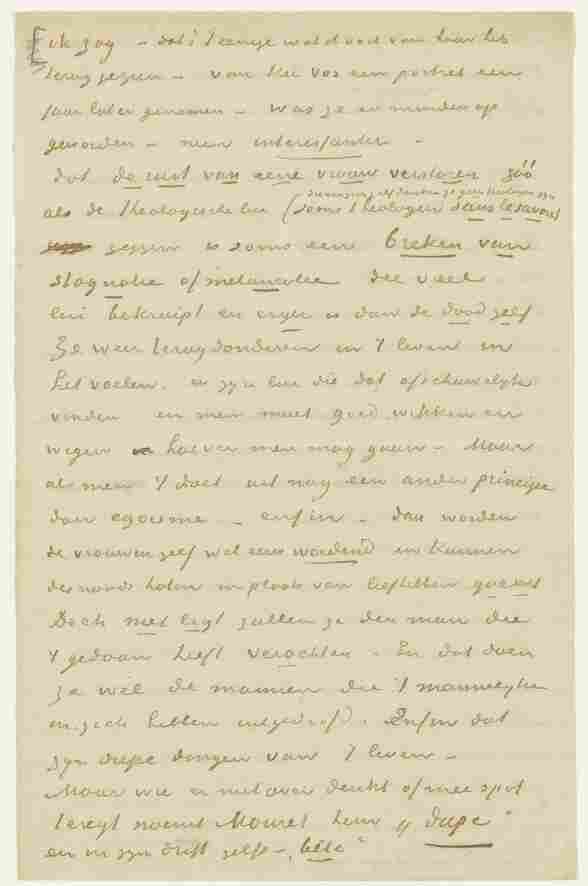 [ik zag – dat's 't eenige wat ik ooit van haar heb
terug gezien – van Kee Vos een portret een
jaar later genomen – was ze er minder op
geworden – neen interessanter –
dat de rust van eene vrouw verstoren zóó
als de theologische lui (soms theologen sans le savoir)
zeggen is soms eene breken van
stagnatie of melancolie die veel
lui bekruipt en erger is dan de dood zelf
Ze weer terugdonderen in 't leven in
het voelen. er zijn lui die dat afschuwelijk
vinden en men moet goed wikken en
wegen hoever men mag gaan – Maar
als men 't doet uit nog een ander principe
dan egoisme – enfin – dan worden
de vrouwen zelf wel eens woedend en kunnen
des noods haten in plaats van liefhebben
Doch niet ligt zullen ze den man die
't gedaan heeft verachten. En dat doen
ze wel de mannen die 't mannelijke
in zich hebben uitgedoofd. Enfin dat
zijn diepe dingen van 't leven –
Maar wie er niet over denkt of mee spot
noemt Mouret hun „dupe”
en in zijn drift zelfs „bête”